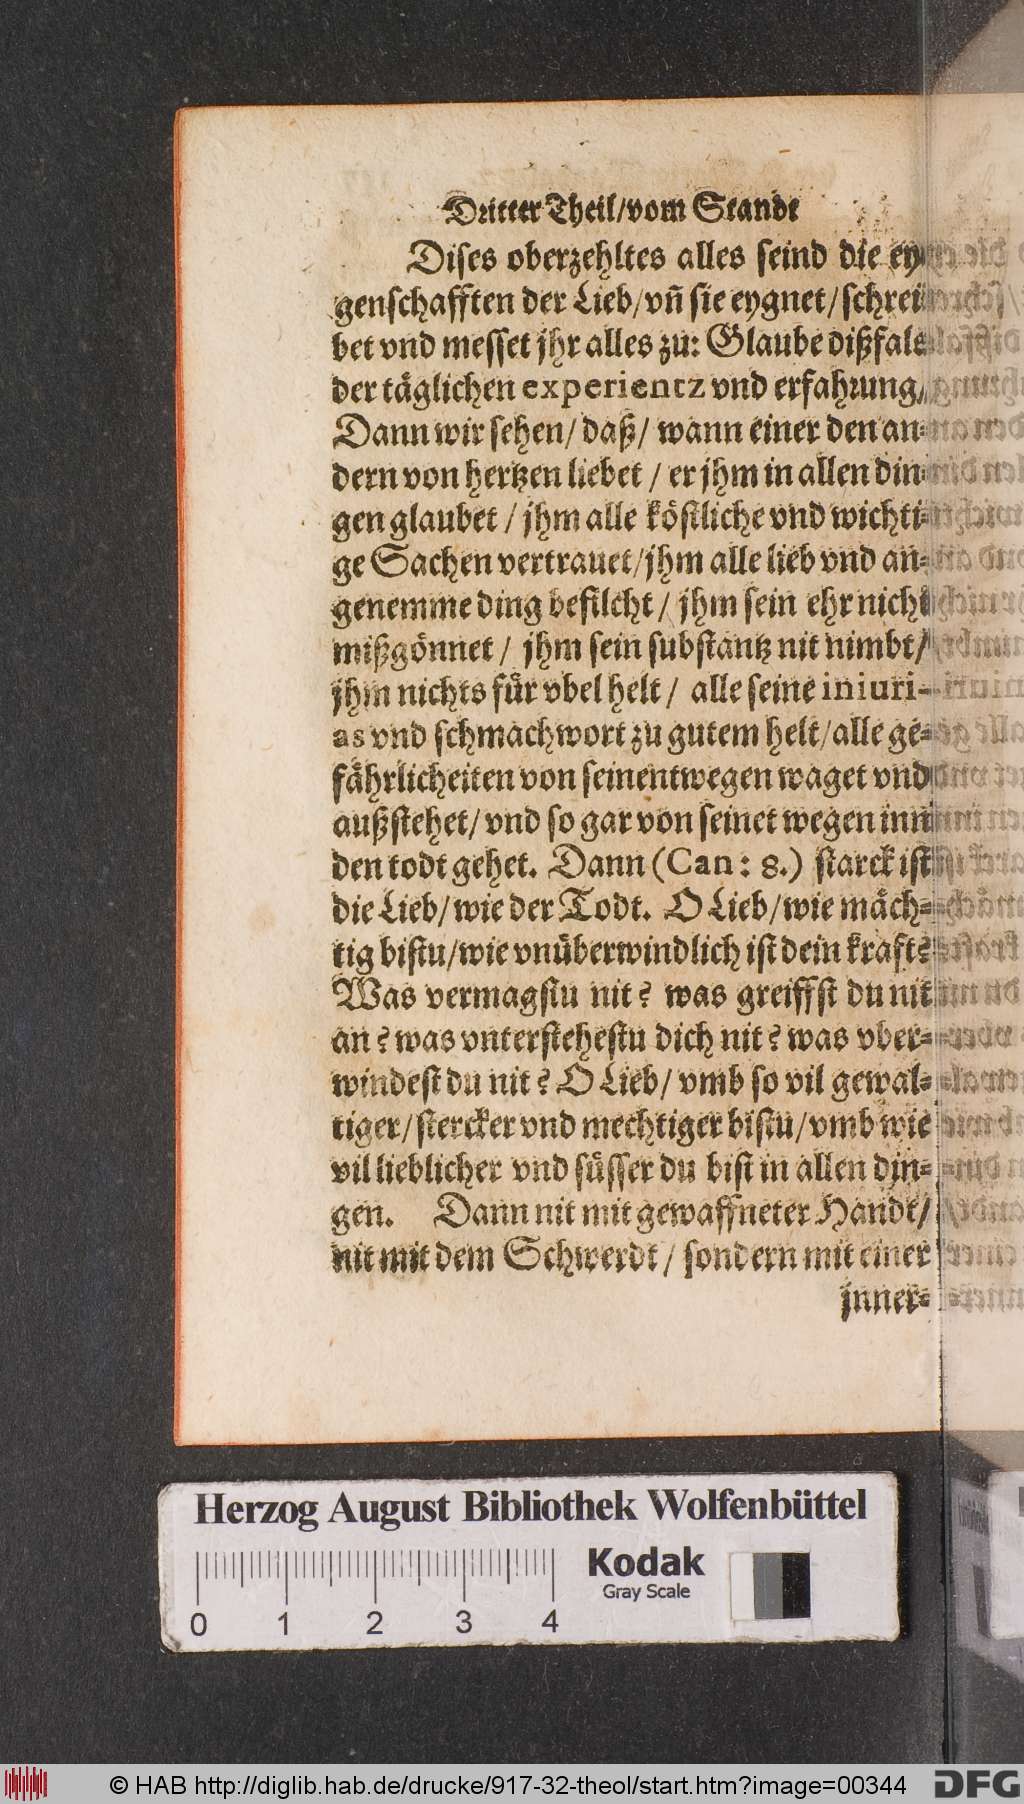 Dritter Theil/vom Stande
Dises oberzehltes alles seind die ey-
genschafften der Lieb/vñ sie eygnet/schrei-
bet vnd messet jhr alles zu: Glaube dißfals
der täglichen experientz vnd erfahrung/
Dann wir sehen/ daß/ wann einer den an-
dern von hertzen liebet / er jhm in allen din-
gen glaubet / jhm alle köstliche vnd wichti-
ge Sachen vertrauet/jhm alle lieb vnd an-
genemme ding befilcht / jhm sein ehr nicht
mißgönnet / jhm sein substantz nit nimbt/
jhm nichts für vbel helt / alle seine iniuri-
as vnd schmachwort zu gutem helt/alle ge-
fährlicheiten von seinentwegen waget vnd
außstehet/ vnd so gar von seinet wegen inn
den todt gehet. Dann (Can: 8.) starck ist
die Lieb/ wie der Todt. O Lieb/wie mäch-
tig bistu/wie vnüberwindlich ist dein kraft?
Was vermagstu nit? was greiffst du nit
an? was vnterstehestu dich nit? was vber-
windest du nit? O Lieb/ vmb so vil gewal-
tiger/ stercker vnd mechtiger bistu/vmb wie
vil lieblicher vnd süsser du bist in allen din-
gen. Dann nit mit gewaffneter Handt/
nit mit dem Schwerdt / sondern mit einer
jnner-
Herzog August Bibliothek Wolfenbüttel
Kodak
Gray Scale
0 1 2 3 4
© HAB http://diglib.hab.de/drucke/917-32-theol/start.htm?image=00344
DFG